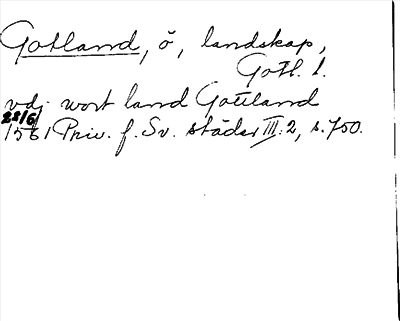 Gotland, ö, landskap,
Gotl. l.
vdj wort land Gottland
22/6
1561 Priv. f. Sv. städer III:2, s. 750.